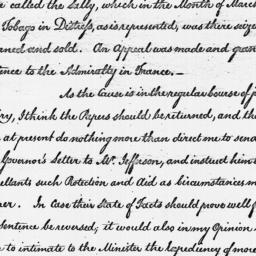 called the Sally, which in the Month of
Tobago in Distress, as is represented, was there
and sold. An Appeal was made and
to the Admiralty in France.—
As the Cause is in the regular course of
I think the Papers should be returned, and
at present do nothing more than direct me to send
Governor's Letter to Mr. Jefferson, and instruct him to
such Protection and Aid as circumstances
In case their State of Facts should prove well
Sentence be reversed, it would also in my Opinion
to intimate to the Minister the Expediency of more